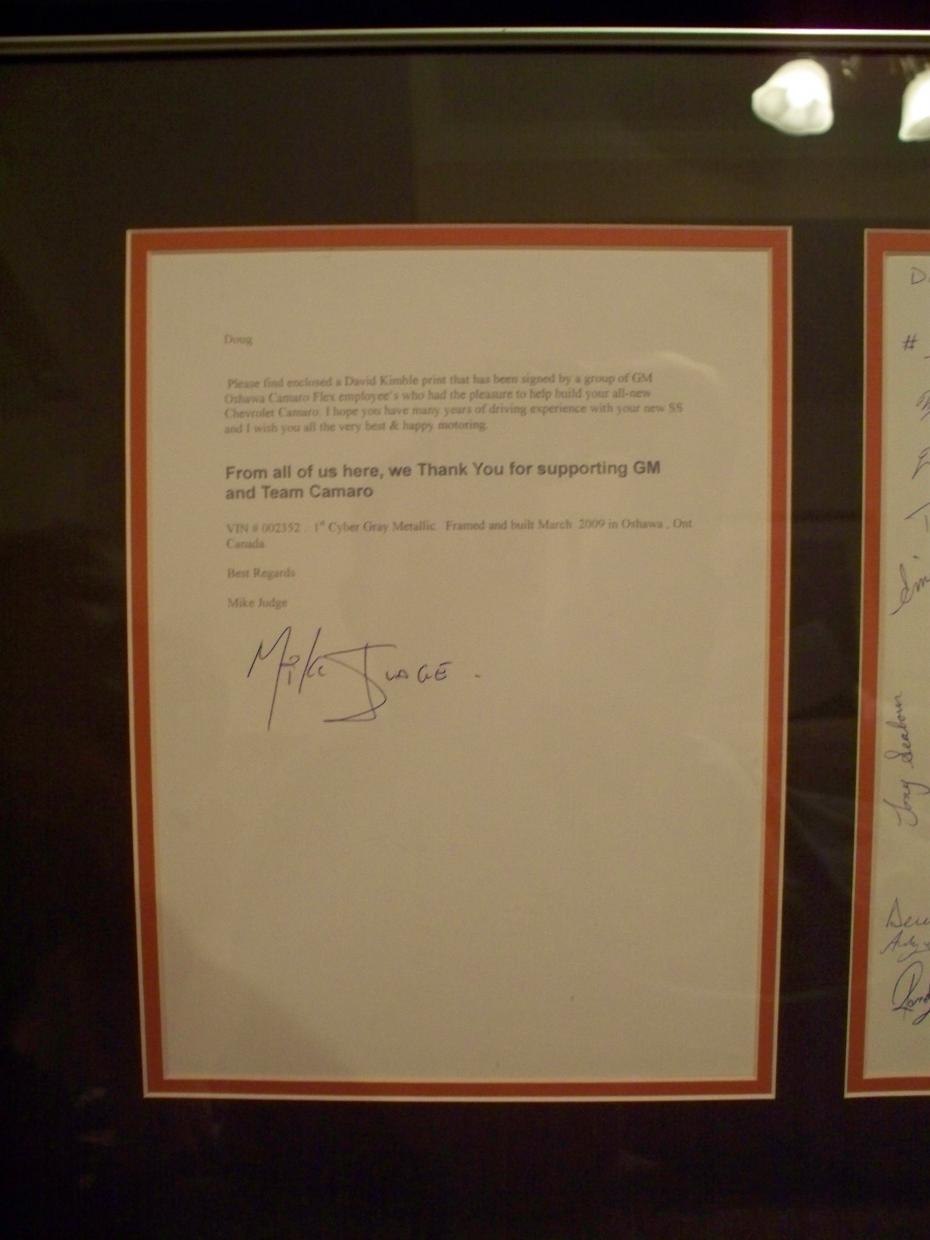 Doug
Please find enclosed a David Kimble print that has been signed by a group of GM
Oshawa Camaro Flex employee's who had the pleasure to help build your all-new
Chevrolet Camaro. I hope you have many years of driving experience with your new SS
and I wish you all the very best & happy motoring.
From all of us here, we Thank You for supporting GM
and Team Camaro
VIN # 002352 . 1st Cyber Gray Metallic. Framed and built March 2009 in Oshawa , Ont
Canada
Best Regards
Mike Judge
Mike JUDGE .
#
Tony Seabourn